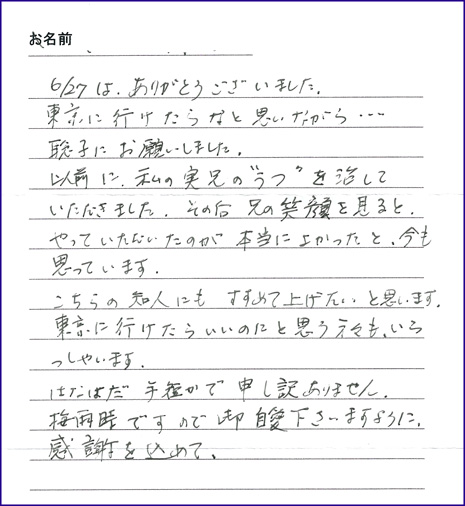 お名前
6/27は、ありがとうございました。
東京に行けたらなと思いながら…
聡子にお願いしました。
以前に、私の実兄の"うつ"を治して
いただきました。その后兄の笑顔を見ると、
やっていただいたのが本当によかったと、今も
思っています。
こちらの知人にもすすめて上げたいと思います。
東京に行けたらいいのにと思う方々も、いら
っしゃいます。
はなはだ手短かで申し訳ありません。
梅雨時ですので御自愛下さいますように。
感謝を込めて。